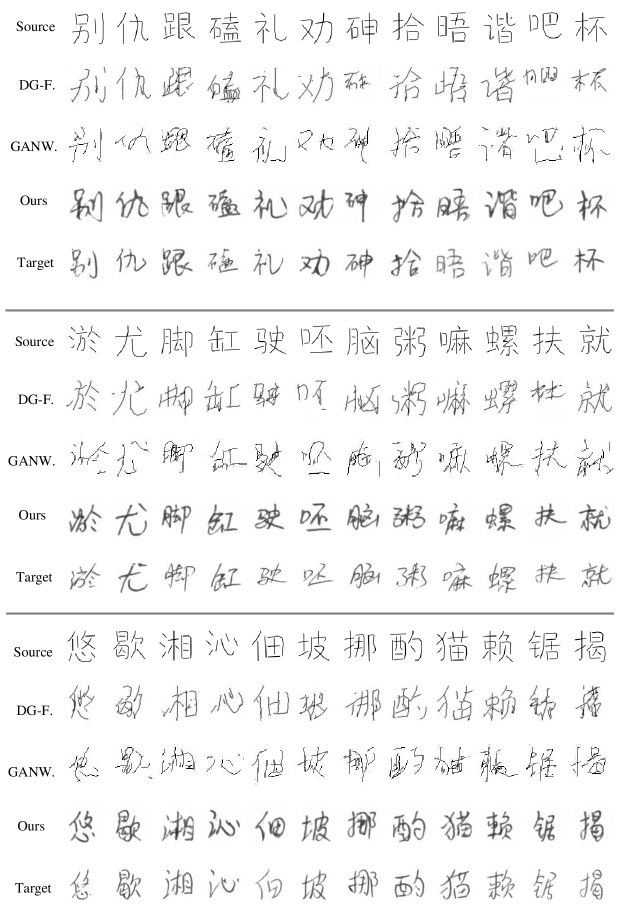 Source 别 仇 跟 磕 礼 劝 砷 拾 晤 谐 吧 杯
DG-F. 别 仇 跟 磕 礼 劝 砷 拾 晤 谐 吧 杯
GANW. 别 仇 跟 磕 礼 劝 砷 拾 晤 谐 吧 杯
Ours 别 仇 跟 磕 礼 劝 砷 拾 晤 谐 吧 杯
Target 别 仇 跟 磕 礼 劝 砷 拾 晤 谐 吧 杯
Source 淤 尤 脚 缸 驶 呸 脑 粥 嘛 螺 扶 就
DG-F. 淤 尤 脚 缸 驶 呸 脑 粥 嘛 螺 扶 就
GANW. 淤 尤 脚 缸 驶 呸 脑 粥 嘛 螺 扶 就
Ours 淤 尤 脚 缸 驶 呸 脑 粥 嘛 螺 扶 就
Target 淤 尤 脚 缸 驶 呸 脑 粥 嘛 螺 扶 就
Source 悠 歇 湘 沁 佃 坡 挪 酌 猫 赖 锯 揭
DG-F. 悠 歇 湘 沁 佃 坡 挪 酌 猫 赖 锯 揭
GANW. 悠 歇 湘 沁 佃 坡 挪 酌 猫 赖 锯 揭
Ours 悠 歇 湘 沁 佃 坡 挪 酌 猫 赖 锯 揭
Target 悠 歇 湘 沁 佃 坡 挪 酌 猫 赖 锯 揭